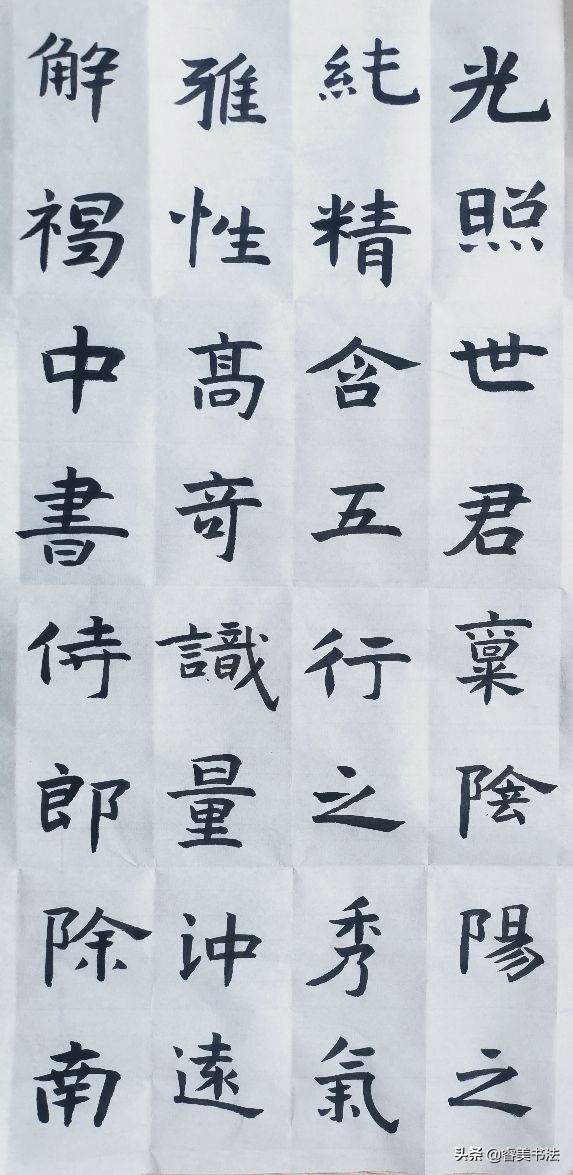 光照世君稟陰陽之
純精含五行之秀氣
雅性高奇識量沖遠
解褐中書侍郎除南
头条@睿美书法